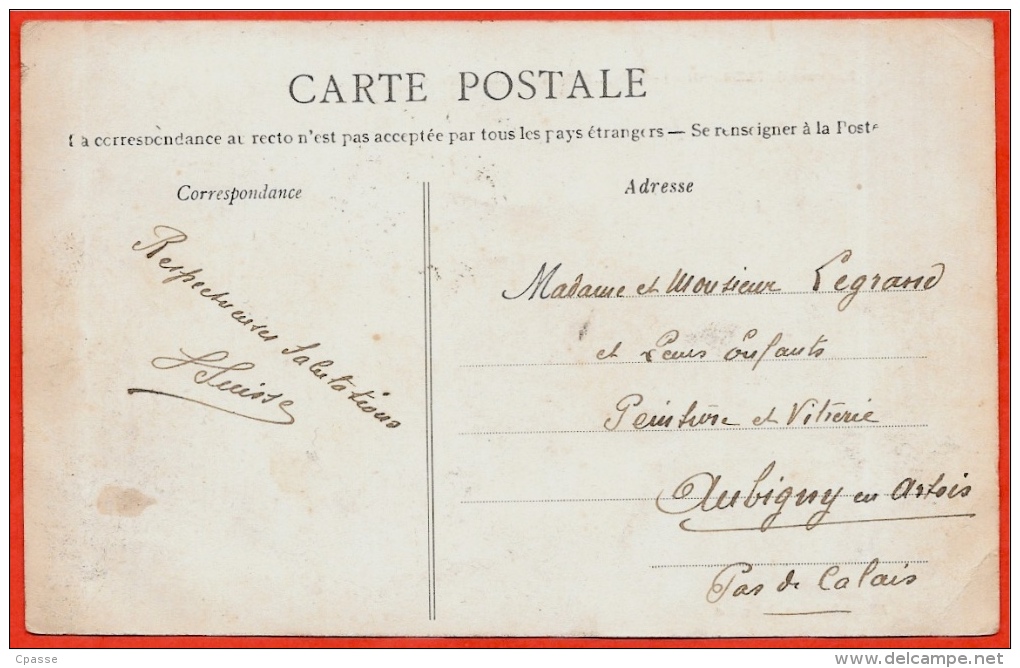 CARTE POSTALE
La correspondance au recto n'est pas acceptée par tous les pays étrangers — Se renseigner à la Poste
Correspondance
Adresse
Respectueuses Salutations
Suisse
Madame et Monsieur Legrand
et Leurs Enfants
Peinture et Vitrerie
Aubigny en Artois
Pas de Calais
Cpasse
delcampe.net